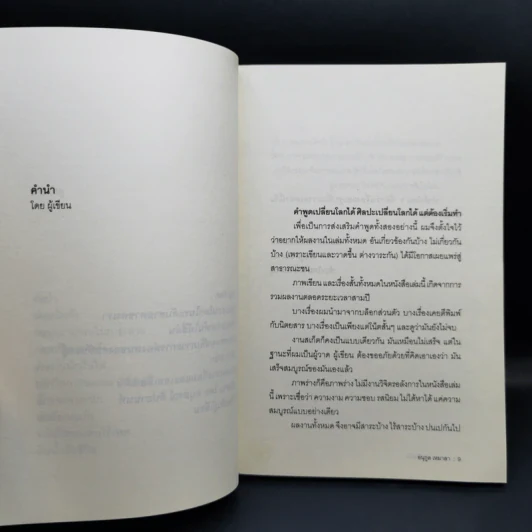 คำนำ
โดย ผู้เขียน
คำพูดเปลี่ยนโลกได้ ศิลปะเปลี่ยนโลกได้ แต่ต้องเริ่มทำ
เพื่อเป็นการส่งเสริมคำพูดทั้งสองอย่างนี้ ผมจึงตั้งใจไว้
ว่าอยากให้ผลงานในเล่มทั้งหมด อันเกี่ยวข้องกันบ้าง ไม่เกี่ยวกัน
บ้าง (เพราะเขียนและวาดขึ้น ต่างวาระกัน) ได้มีโอกาสเผยแพร่สู่
สาธารณะชน
ภาพเขียน และเรื่องสั้นทั้งหมดในหนังสือเล่มนี้ เกิดจากการ
รวมผลงานตลอดระยะเวลาสามปี
บางเรื่องผมนำมาจากบล็อกส่วนตัว บางเรื่องเคยตีพิมพ์
กับนิตยสาร บางเรื่องเป็นเพียงแค่โน้ตสั้นๆ และดูว่ามันยังไม่จบ
งานสเก็ตก็คงเป็นแบบเดียวกัน มันเหมือนไม่เสร็จ แต่ใน
ฐานะที่ผมเป็นผู้วาด ผู้เขียน ต้องขออภัยด้วยที่คิดเอาเองว่า มัน
เสร็จสมบูรณ์ของมันเองแล้ว
ภาพร่างก็คือภาพร่าง ไม่มีงานวิจิตรอลังการในหนังสือเล่ม
นี้ เพราะเชื่อว่า ความงาม ความชอบ รสนิยม ไม่ได้หาได้ แค่ความ
สมบูรณ์แบบอย่างเดียว
ผลงานทั้งหมด จึงอาจมีสาระบ้าง ไร้สาระบ้าง ปนเปกันไป